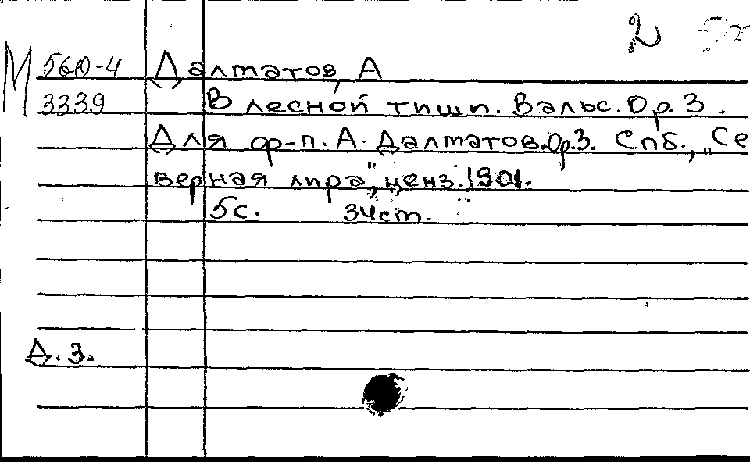 2
М 560-4 Далматов, А
3339 В лесной тиши. Вальс. Ор. 3.
Для ор-п. А. Далматов. Ор.3. Спб., „Се
верная лира", ценз. 1901.
5с. 34ст.
Д. З.